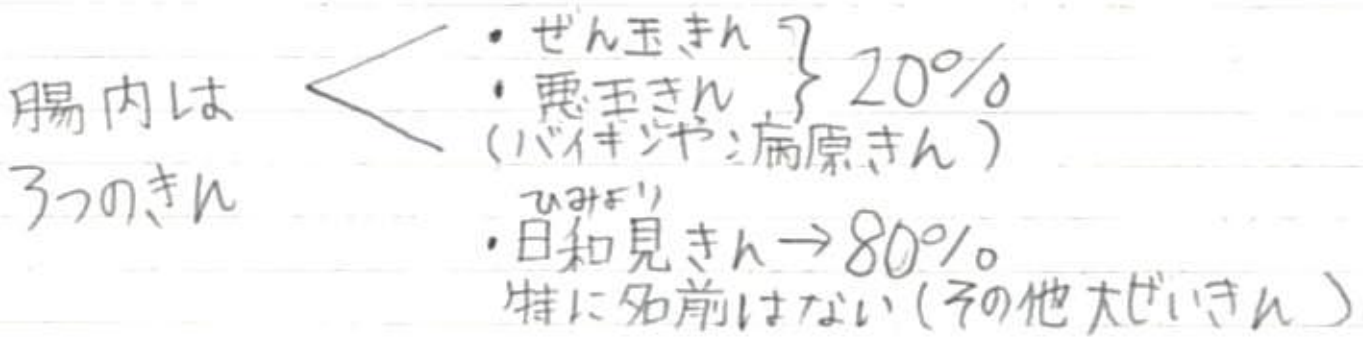 腸内は
3つのきん
・ぜん玉きん
・悪玉きん } 20%
(バイキンや病原きん)
ひみより
・日和見きん→80%
特に名前はない(その他大ぜいきん)